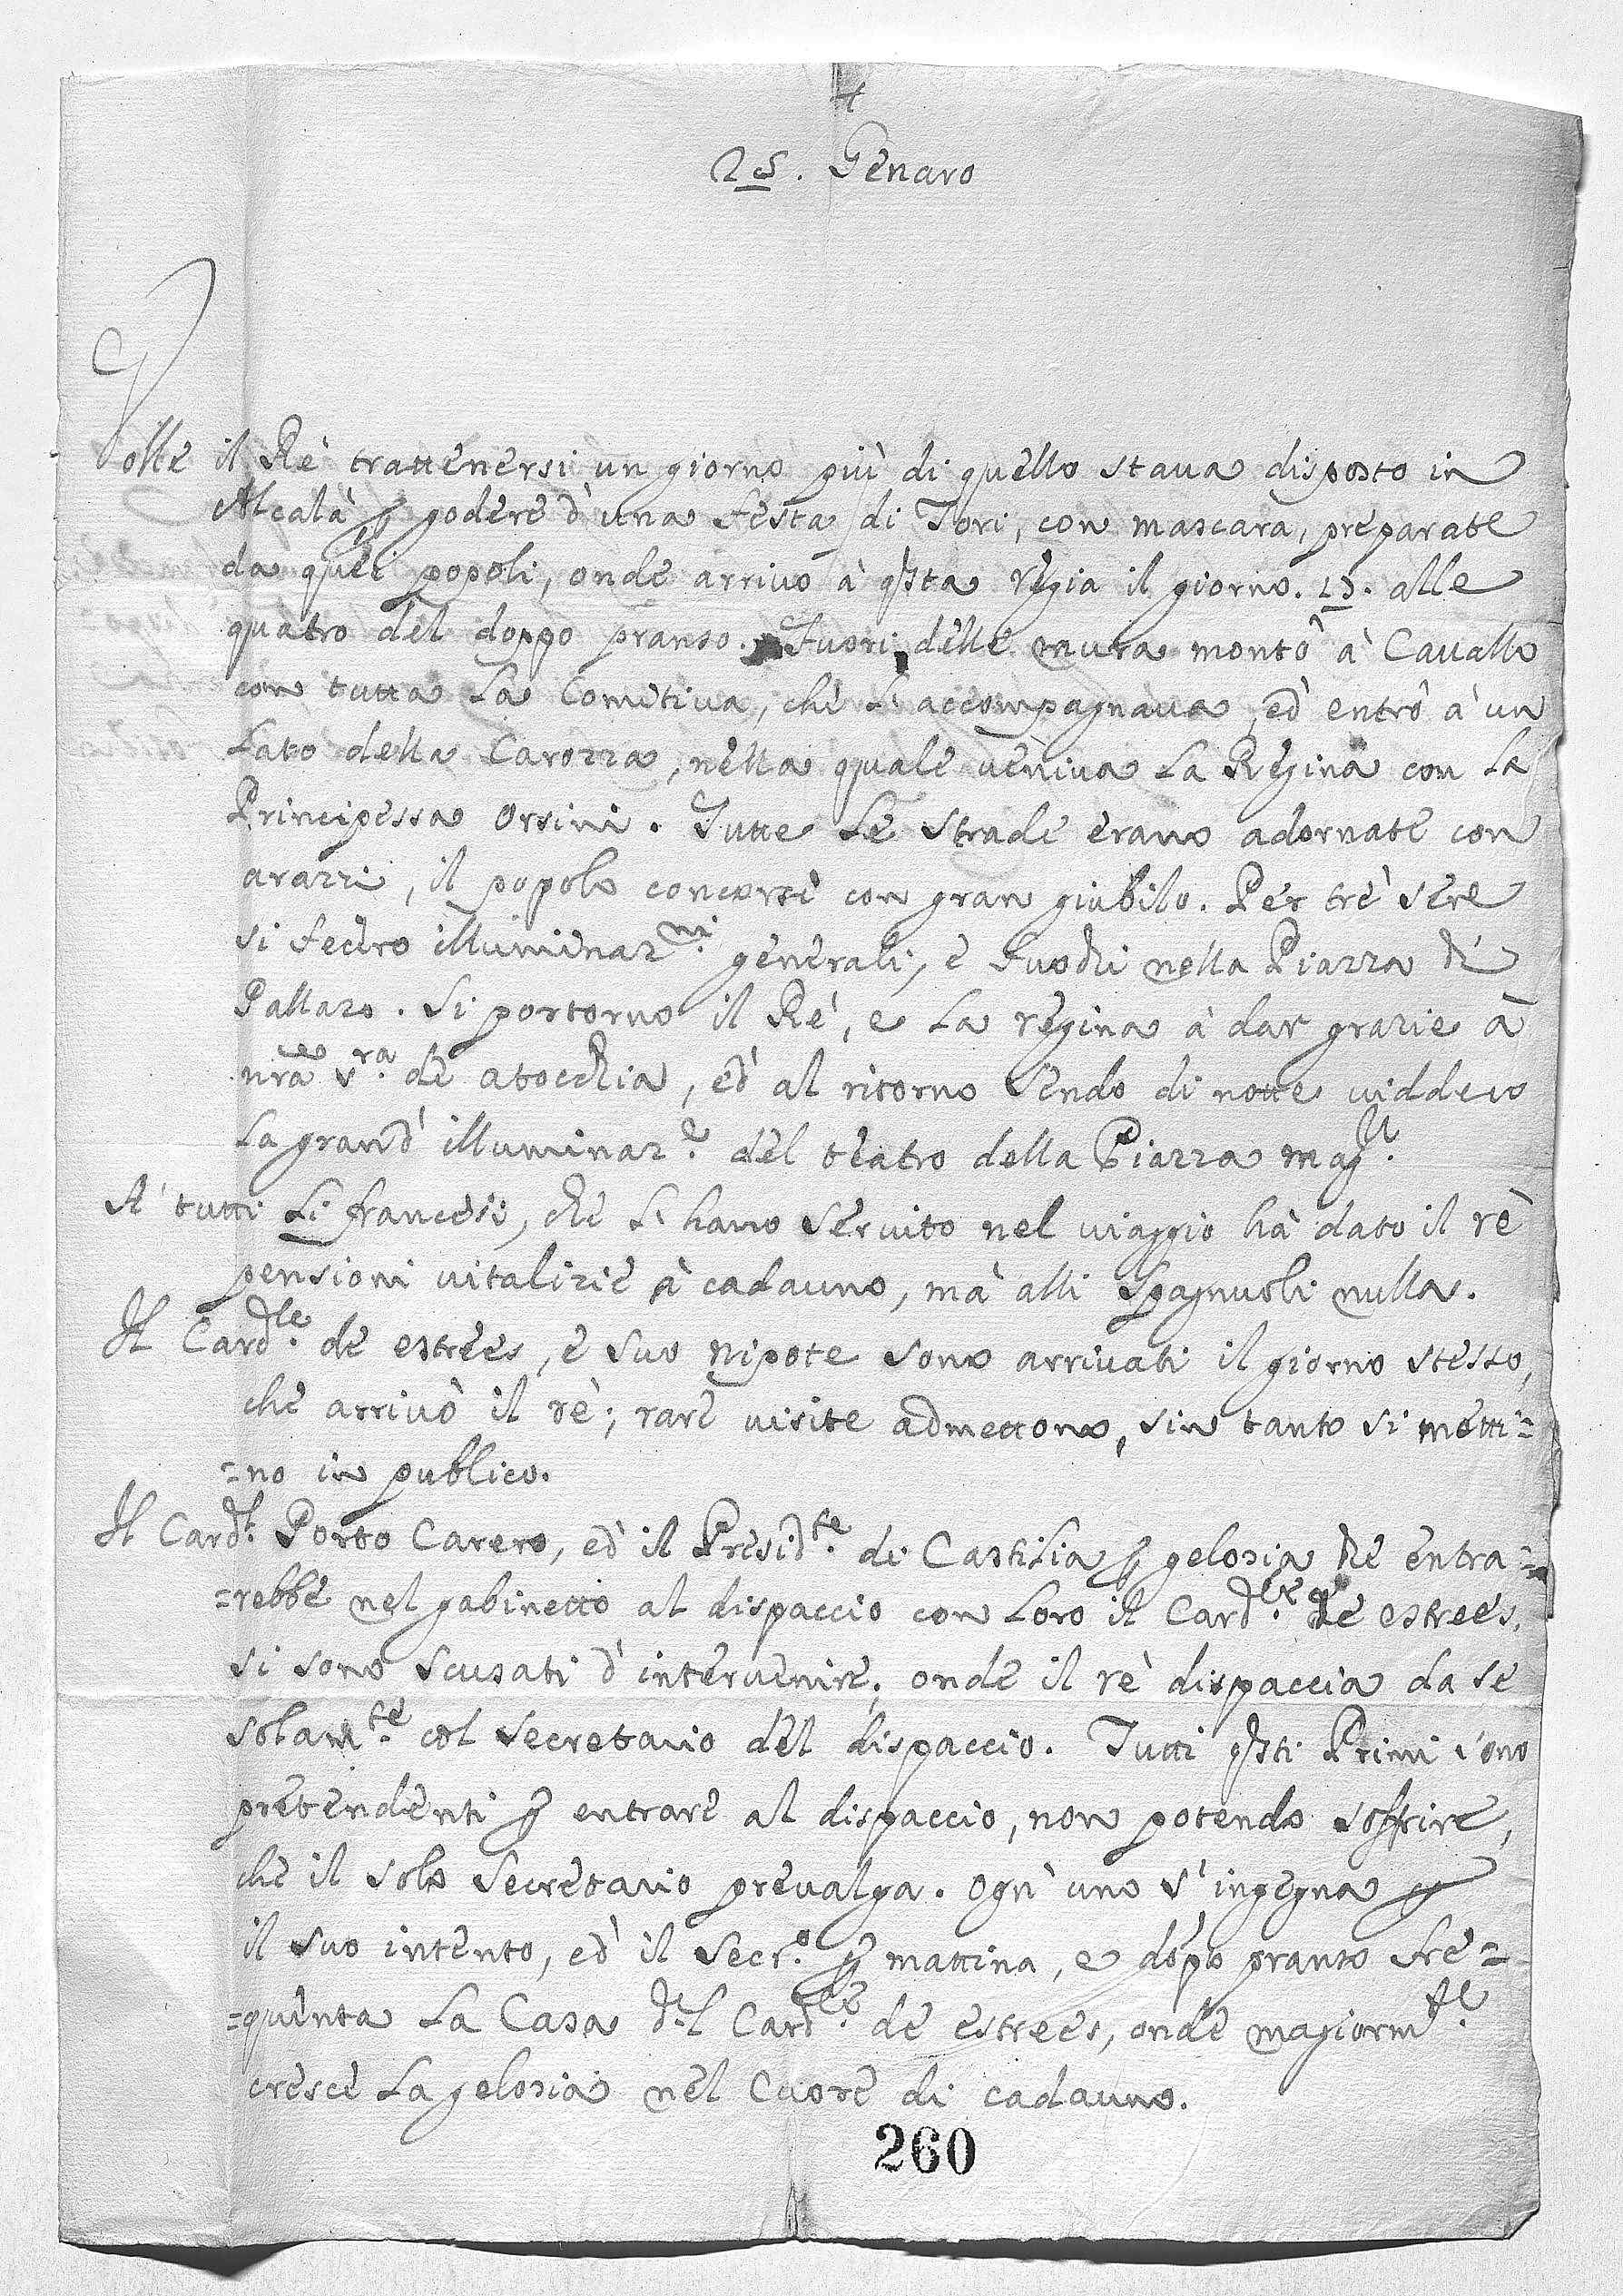 25. Genaro
Volle il Rè trattenersi un giorno più di quello staua disposto in
Alcalà p godere d'una festa di Tori, con mascara, preparate
da quei popoli, onde arrivo à qsta regia il giorno. alle
quatro del doppo pranso. Fuori delle mura montò à Cauallo
con tutta la Comitiua, che l'accompagnaua, ed entrò à un
lato della Carozza, nella quale ueniua la Regina con la
Principessa Orsini. Tutte le strade erano adornate con
arazzi, il popolo concorse con gran giubilo. Per trè sere
si fecero illuminaz.ni generali, e fuochi nella Piazza di
Pallazo. Si portorno il Rè, e la regina à dar grazie à
nrã s.ra de atocchia, ed al ritorno sendo di notte uiddero
la grand' illuminaz.e del teatro della Piazza mag.r
A' tutti li francesi, che li hano seruito nel uiaggio hà dato il rè
pensioni uitalizie à cadauno, mà alli Spagnuoli nulla.
Il Card.le de estrees, e suo nipote sono arriuati il giorno stesso,
che arriuò il rè; rare uisite admettono, sin tanto si metti=
=no in publico.
Il Card.l Porto Carero, ed il Presid.te di Castilia p gelosia che entra=
=rebbe nel gabinetto al dispaccio con loro il Card.le de estrees,
si sono scusati d'interuenire; onde il rè dispaccia da se
solam.te col secretario del dispaccio. Tutti qsti Primi sono
pretendenti p entrare al dispaccio, non potendo soffrire,
che il solo secretario preualga. Ogn'uno s'ingegna p
il suo intento, ed il secr.o p mattina, e dopo pranso fre=
=quenta la Casa del Card.le de estrees, onde magiorm.te
cresce la gelosia nel Cuore di cadauno.
260